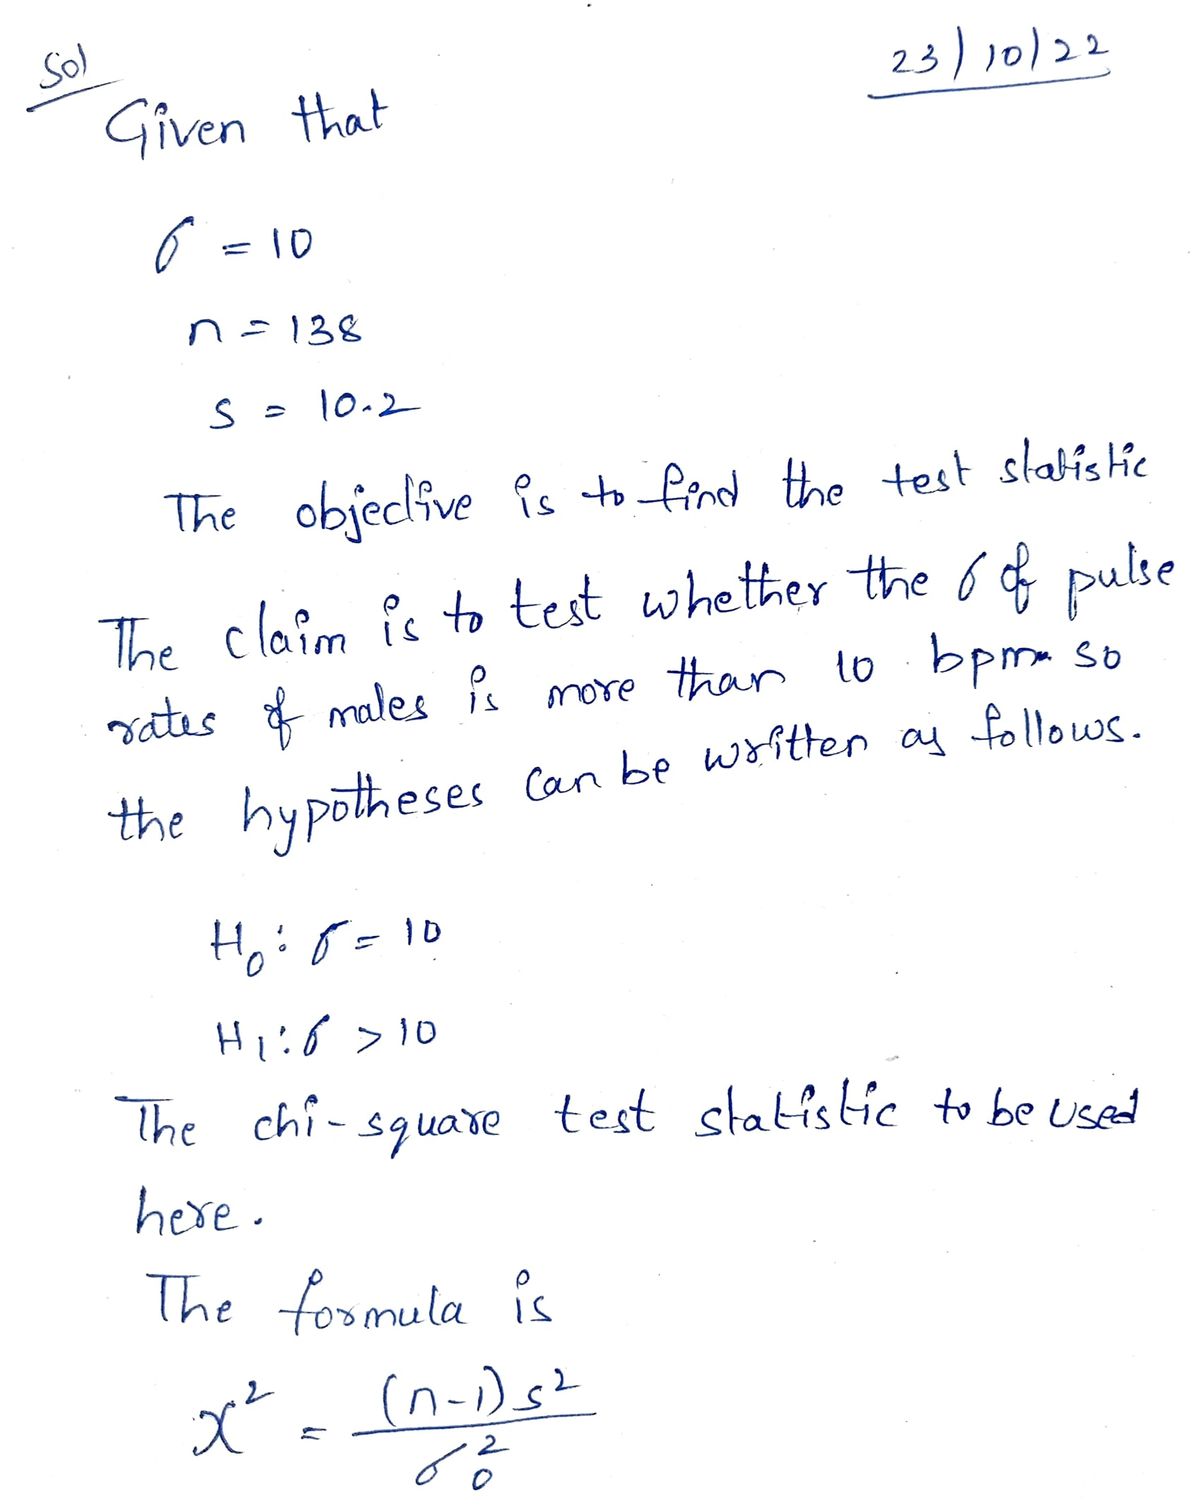 Sol
23/10/22
Given that
σ = 10
n = 138
s = 10.2
The objective is to find the test statistic
The claim is to test whether the σ of pulse
rates of males is more than 10 bpm so
the hypotheses can be written as follows.
H₀: σ = 10
H₁: σ > 10
The chi-square test statistic to be used
here.
The formula is
x² = (n-1)s² / σ₀²